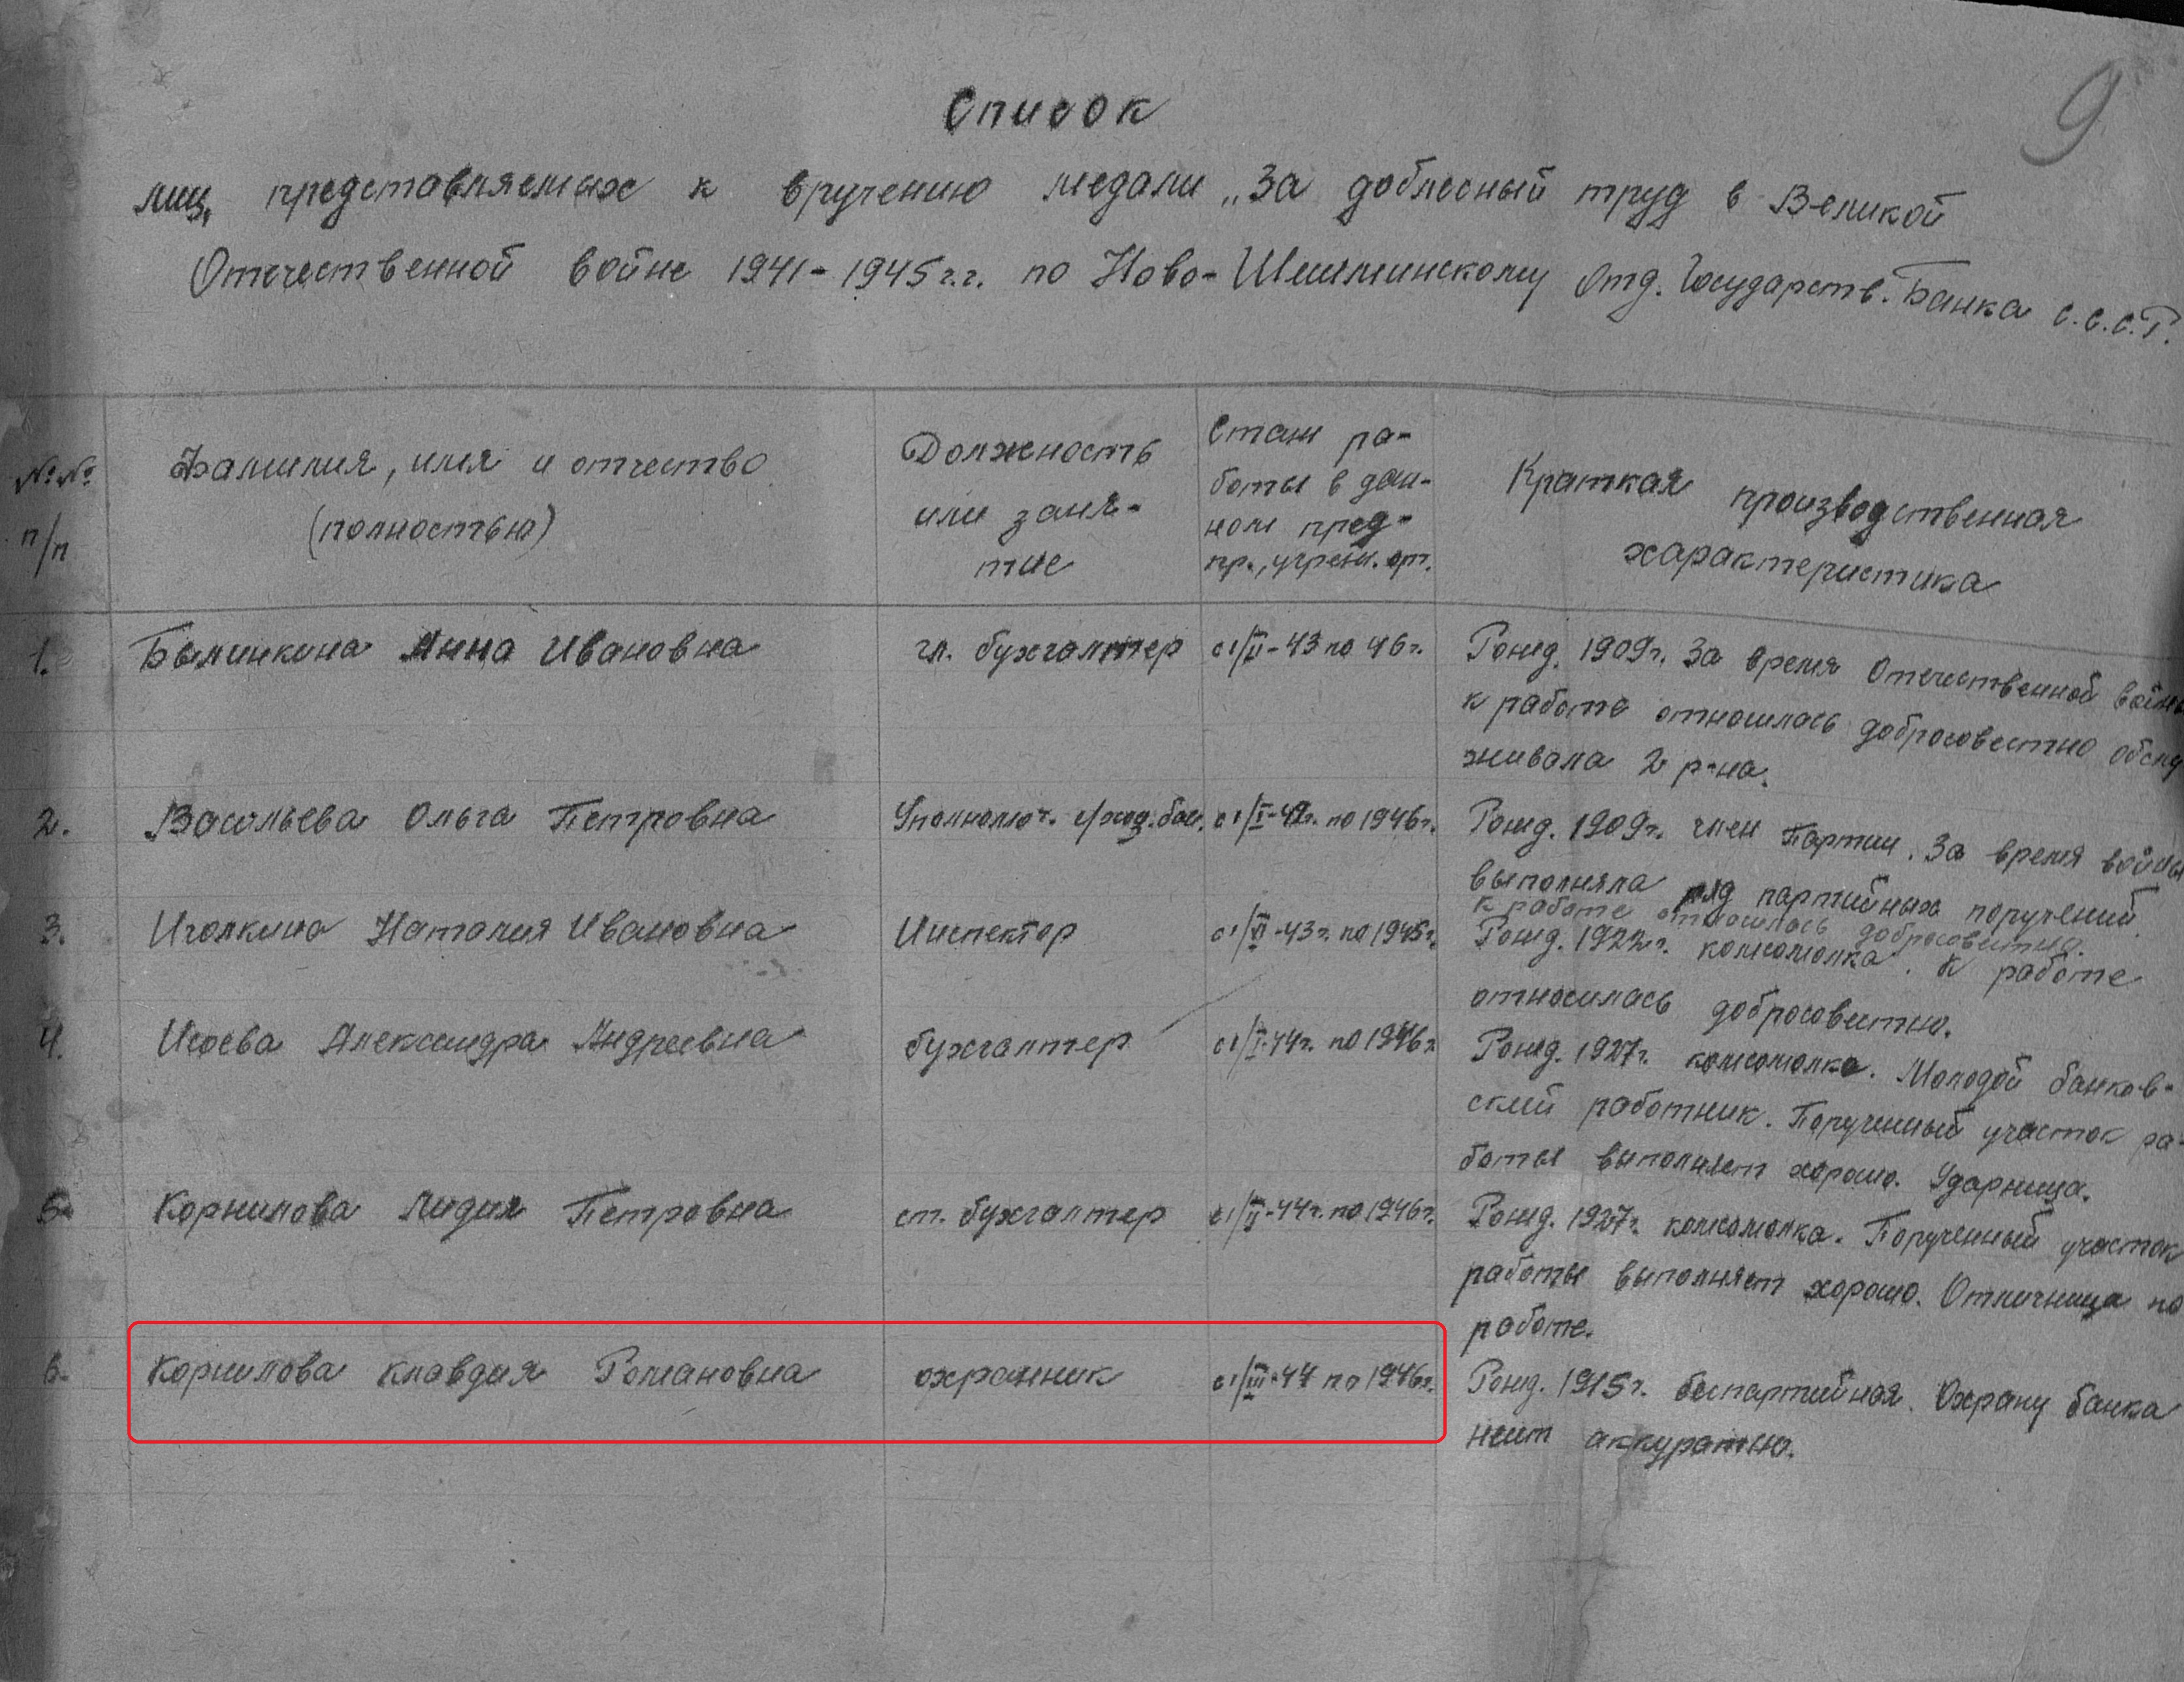 9
Список
лиц, представляемых к вручению медали „За доблесный труд в Великой
Отечественной войне 1941-1945 г.г. по Ново-Шешминскому Отд. Государств. Банка С.С.С.Р.
№№ п/п
Фамилия, имя и отчество
(полностью)
Должность
или заня-
тие
Стаж ра-
боты в дан-
ном пред-
пр., учрежд. орг.
Краткая производственная
характеристика
1. Былинкина Анна Ивановна гл. бухгалтер с 1/II-43 по 46 г. Рожд. 1909 г. За время Отечественной войны
к работе относилась добросовестно обслу
живала 2 р-на.
2. Васильева Ольга Петровна Уполномоч. с 1/I-42 г. по 1946 г. Рожд. 1909 г. член Партии. За время войны
выполняла ряд партийных поручений.
к работе относилась добросовестно.
3. Иголкина Наталия Ивановна Инспектор с 1/VI-43 г. по 1945 г. Рожд. 1922 г. комсомолка. К работе
относилась добросовестно.
4. Исаева Александра Андреевна бухгалтер с 1/I-44 г. по 1946 г. Рожд. 1927 г. комсомолка. Молодой банков-
ский работник. Порученный участок ра-
боты выполняет хорошо. Ударница.
5. Корнилова Лидия Петровна ст. бухгалтер с 1/II-44 г. по 1946 г. Рожд. 1927 г. комсомолка. Порученный участок
работы выполняет хорошо. Отличница по
работе.
6. Корнилова Клавдия Романовна охранник с 1/III-44 по 1946 г. Рожд. 1915 г. беспартийная. Охрану банка
несет аккуратно.